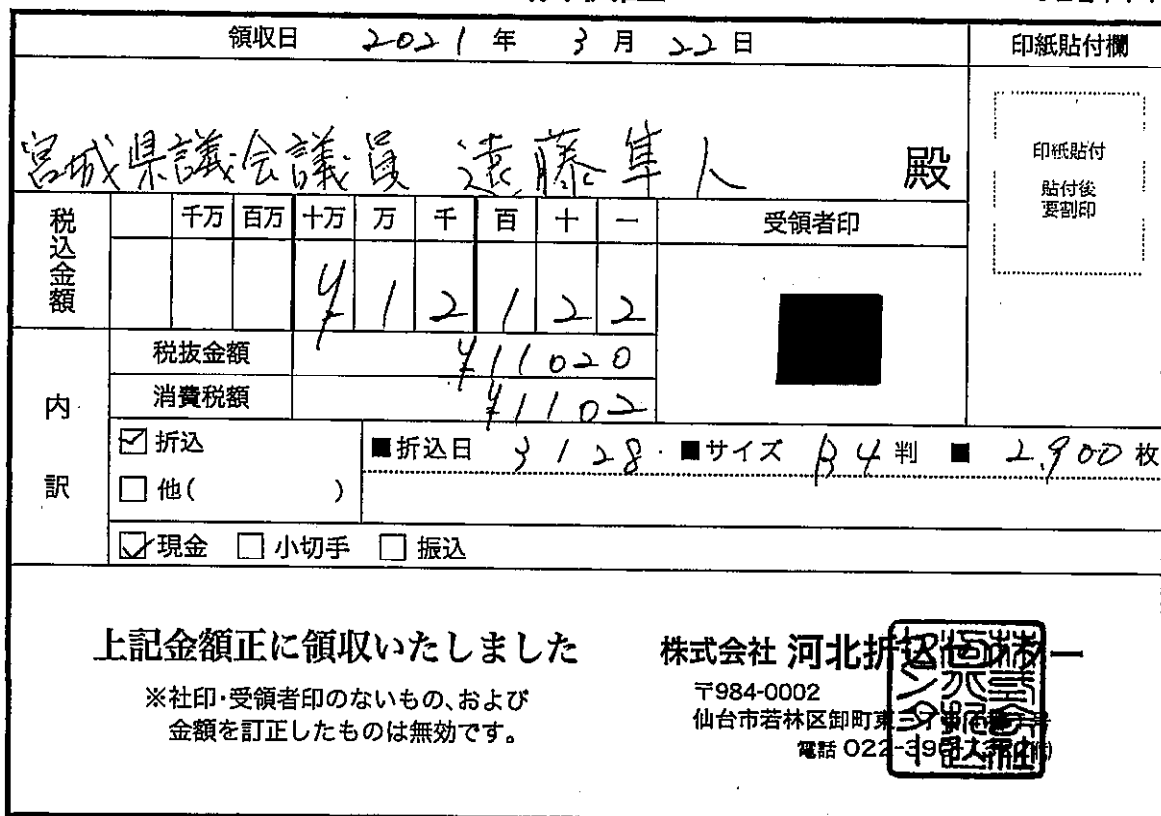 領収日 2021年 3月 22日
印紙貼付欄
宮城県議会議員 遠藤隼人 殿
印紙貼付
貼付後
要割印
税込金額 千万 百万 十万 万 千 百 十 一 受領者印
¥12122
内訳
税抜金額 ¥11020
消費税額 ¥1102
☑折込 ■折込日 3/28 ■サイズ B4判 ■ 2,900枚
□他( )
☑現金 □小切手 □振込
上記金額正に領収いたしました
※社印・受領者印のないもの、および
金額を訂正したものは無効です。
株式会社 河北折込センター
〒984-0002
仙台市若林区卸町東
電話 022-390-